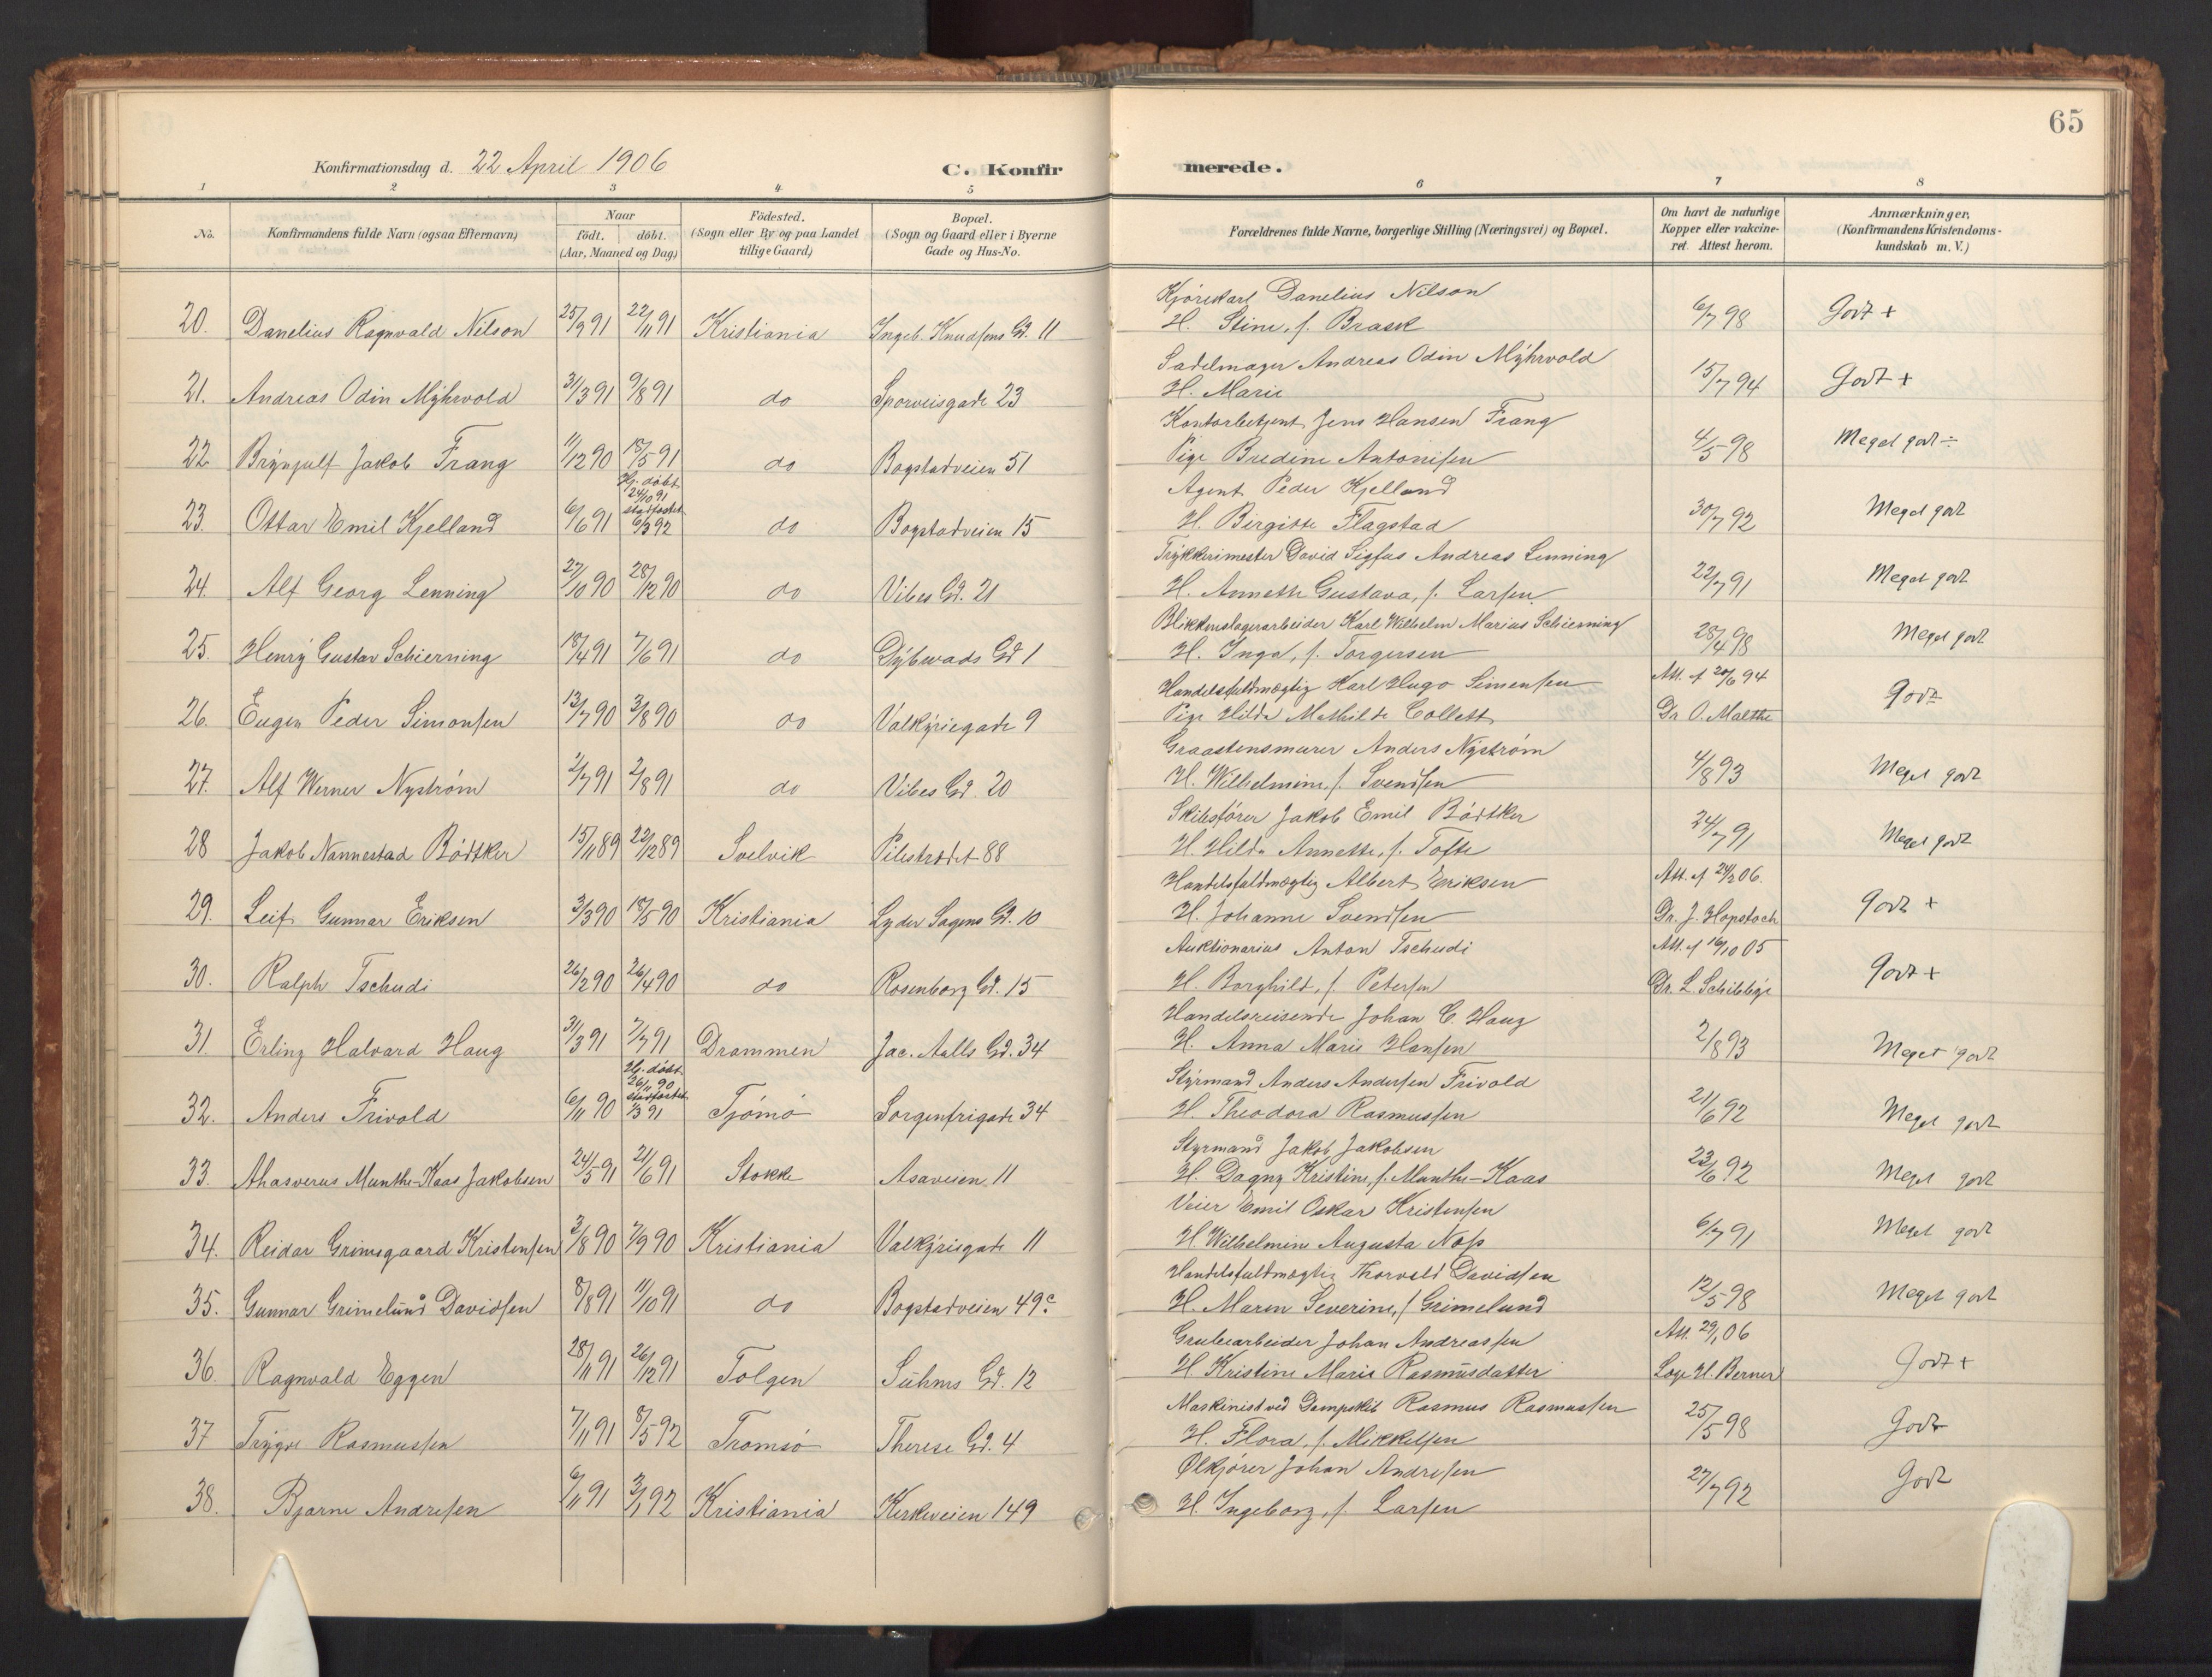 65
Konfirmationsdag d. 22 April 1906 C. Konfirmerede.
1 2 3 4 5 6 7 8
No. Konfirmandens fulde Navn (ogsaa Efternavn) Naar födt. döbt. (Aar, Maaned og Dag) Födested. (Sogn eller By og paa Landet tillige Gaard) Bopæl. (Sogn og Gaard eller i Byerne Gade og Hus-No. Forældrenes fulde Navne, borgerlige Stilling (Næringsvei) og Bopæl. Om havt de naturlige Kopper eller vakcineret. Attest herom. Anmærkninger, (Konfirmandens Kristendomskundskab m. V.)
Kjörekarl Danelius Nilson
20. Danelius Ragnvald Nilson 25/9 91 22/11 91 Kristiania Ingeb. Knudsens Gd. 11 H. Stine, f. Brask 6/7 98 Godt +
Sadelmager Andreas Odin Mÿhrvold
21. Andreas Odin Mÿhrvold 31/3 91 9/8 91 do Sporveisgade 23 H. Marie 15/7 94 Godt +
Kontorbetjent Jens Hansen Frang
22. Brÿnjulf Jakob Frang 11/12 90 18/5 91 do Bogstadveien 51 Pige Bredine Antonisen 4/5 98 Meget godt ÷
Agent Peder Kjelland
23. Ottar Emil Kjelland 6/6 91 Hj. döbt 24/10 91 stadfæstet 6/3 92 do Bogstadveien 15 H. Birgitte Flagstad 30/7 92 Meget godt
Trÿkkerimester David Sigfus Andreas Lenning
24. Alf Georg Lenning 27/10 90 28/12 90 do Vibes Gd. 21 H. Annette Gustava, f. Larsen 22/7 91 Meget godt
Blikkenslagerarbeider Karl Wilhelm Marius Schierning
25. Henrÿ Gustav Schierning 18/4 91 7/6 91 do Dÿbwads Gd 1 H. Inga, f. Torgersen 28/4 98 Meget godt
Handelsfuldmægtig Karl Hugo Simensen Att. af 20/6 94
26. Eugen Peder Simonsen 13/7 90 3/8 90 do Valkÿriegade 9 Pige Hilda Mathilde Collett Dr O. Malthe Godt
Graastensmurer Anders Nÿström
27. Alf Werner Nyström 2/7 91 2/8 91 do Vibes Gd. 20 H. Wilhelmine, f. Svendsen 4/8 93 Meget godt
Skibsförer Jakob Emil Bödtker
28 Jakob Nannestad Bödtker 15/11 89 22/12 89 Svelvik Pilestrædet 88 H. Hilda Annette, f. Tofte 24/7 91 Meget godt
Handelsfuldmægtig Albert Eriksen Att. af 24/2 06.
29. Leif Gunnar Eriksen 3/3 90 18/5 90 Kristiania Lyder Sagens Gd. 10 H. Johanne Svendsen Dr. J. Hopstock Godt +
Auktionarius Anton Tschudi Att. af 16/10 05
30. Ralph Tschudi 26/2 90 26/4 90 do Rosenborg Gd. 15 H. Borghild, f. Petersen Dr. L. Schibbÿe Godt +
Handelsreisende Johan C. Haug
31. Erling Halvard Haug 31/3 91 7/7 91 Drammen Jac. Aalls Gd. 34 H. Anna Marie Hansen 2/8 93 Meget godt
Stÿrmand Anders Andersen Frivold
32. Anders Frivold 6/11 90 Hj. döbt 26/11 90 stadfæstet 1/3 91 Tjömö Sorgenfrigade 34 H. Theodora Rasmussen 21/6 92 Meget godt
Styrmand Jakob Jakobsen
33. Ahasverus Munthe-Kaas Jakobsen 24/5 91 21/6 91 Stokke Asaveien 11 H. Dagny Kristine, f. Munthe-Kaas 23/6 92 Meget godt
Veier Emil Oskar Kristensen
34. Reidar Grimsgaard Kristensen 3/8 90 7/9 90 Kristiania Valkÿriegade 11 H. Wilhelmine Augusta Nøss 6/7 91 Meget godt
Handelsfuldmægtig Thorvald Davidsen
35. Gunnar Grimelund Davidsen 8/8 91 11/10 91 do Bogstadveien 49c H. Maren Severine, f Grimelund 12/5 98 Meget godt
Grubearbeider Johan Andreassen Att. 29/1 06
36. Ragnvald Eggen 28/11 91 26/12 91 Tolgen Suhms Gd. 12 H. Kristine Marie Rasmusdatter Læge H. Berner Godt +
Maskinist ved Dampskib Rasmus Rasmussen
37 Trÿgve Rasmussen 7/11 91 8/5 92 Tromsö Therese Gd. 4 H. Flora, f. Mikkelsen 25/5 98 Godt
Ölkjörer Johan Andresen
38. Bjarne Andresen 6/11 91 3/1 92 Kristiania Kirkeveien 149 H. Ingeborg, f. Larsen 27/7 92 Godt